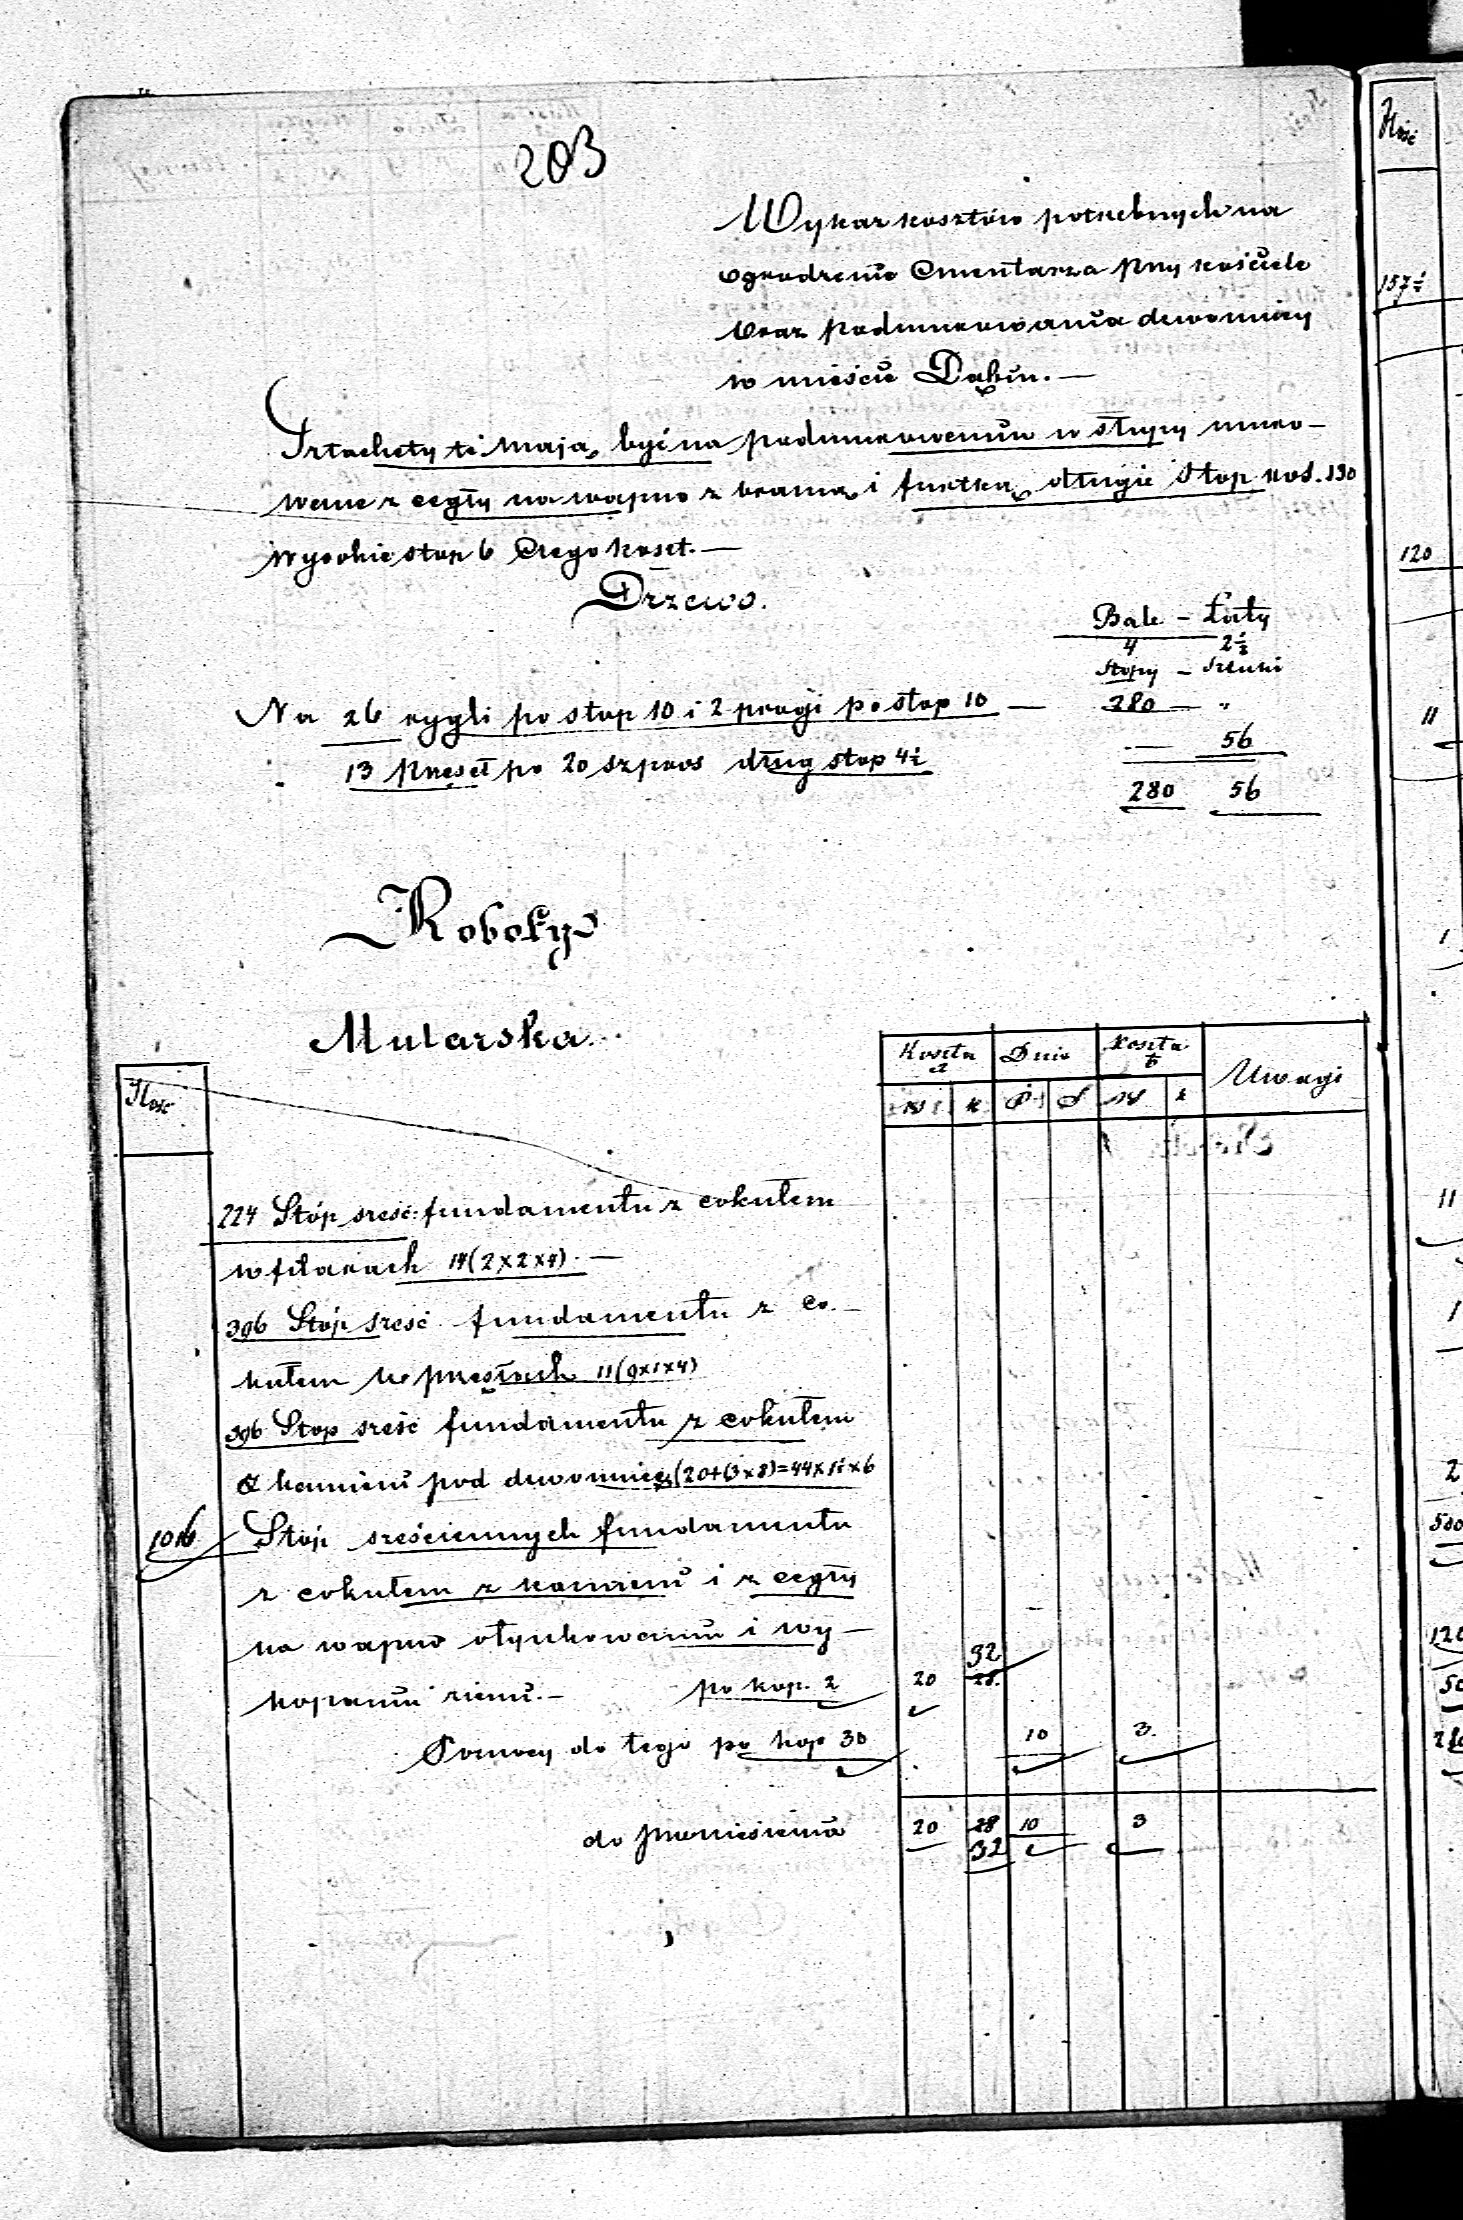 203
Wykaz kosztów potrzebnych na
ogrodzenie Cmentarza przy kościele
oraz podmurowania dzwonnicy
w mieście Dąbiu.—
Sztachety te mają być na podmurowaniu w słupy muro-
wane z cegły na wapno z bramą i furtką długie stop kos. 130
Wysokie stop 6 Czego koszt.—
Drzewo.
Bale – Łaty
4 2½
Stopy – Sztuki
Na 26 rygli po stop 10 i 2 progi po stop 10 — 280 — "
13 Przęseł po 20 szpros dług stop 4½ — 56
280 56
Roboty
Mularska.
Ilość
Koszta a Dnie Koszta b Uwagi
k P S k
224 Stóp sześć: fundamentu z cokułem
w filarach 14(2×2×4).—
396 Stóp sześć fundamentu z co-
kułem w przęsłach 11(9×1×4)
396 Stop sześć fundamentu z cokułem
z kamieni pod dzwonnicę (20+(3×8)=44×1½×6
1016 Stóp sześciennych fundamentu
z cokułem z kamieni i z cegły
na wapno otynkowaniu i wy-
kopaniu ziemi.— po kop. 2 20 28. 32
Pomocy do tego po kop 30 10 3.
do przeniesienia 20 28 10 3
32
Ilość
157½
120
11
1
11
1
2
500